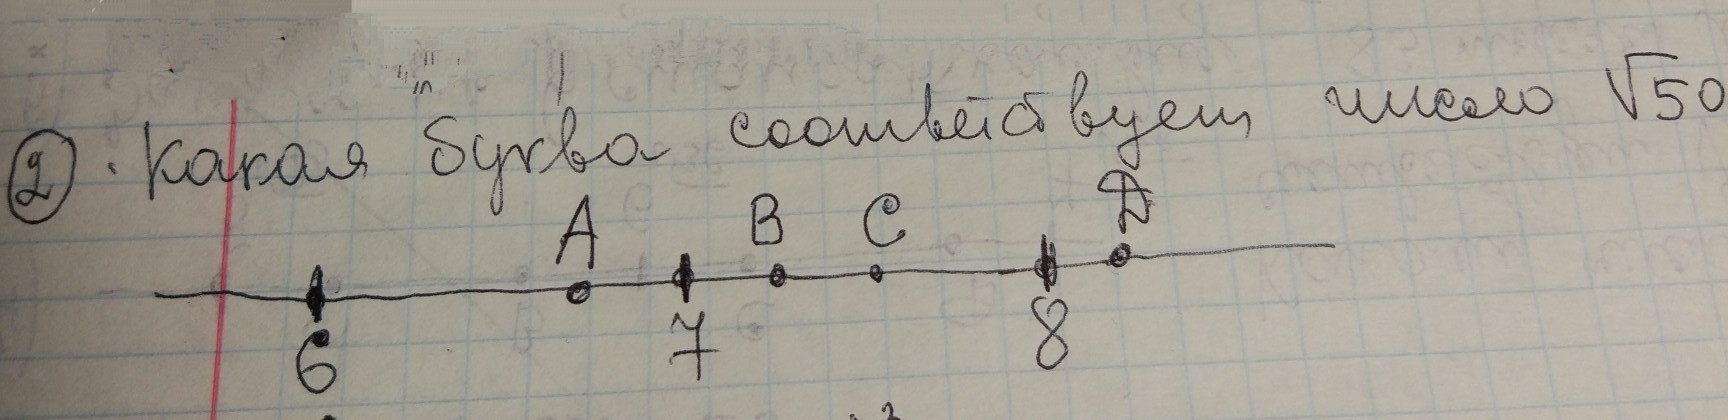 2. Какая буква соответствует число √50
A B C D
6 7 8